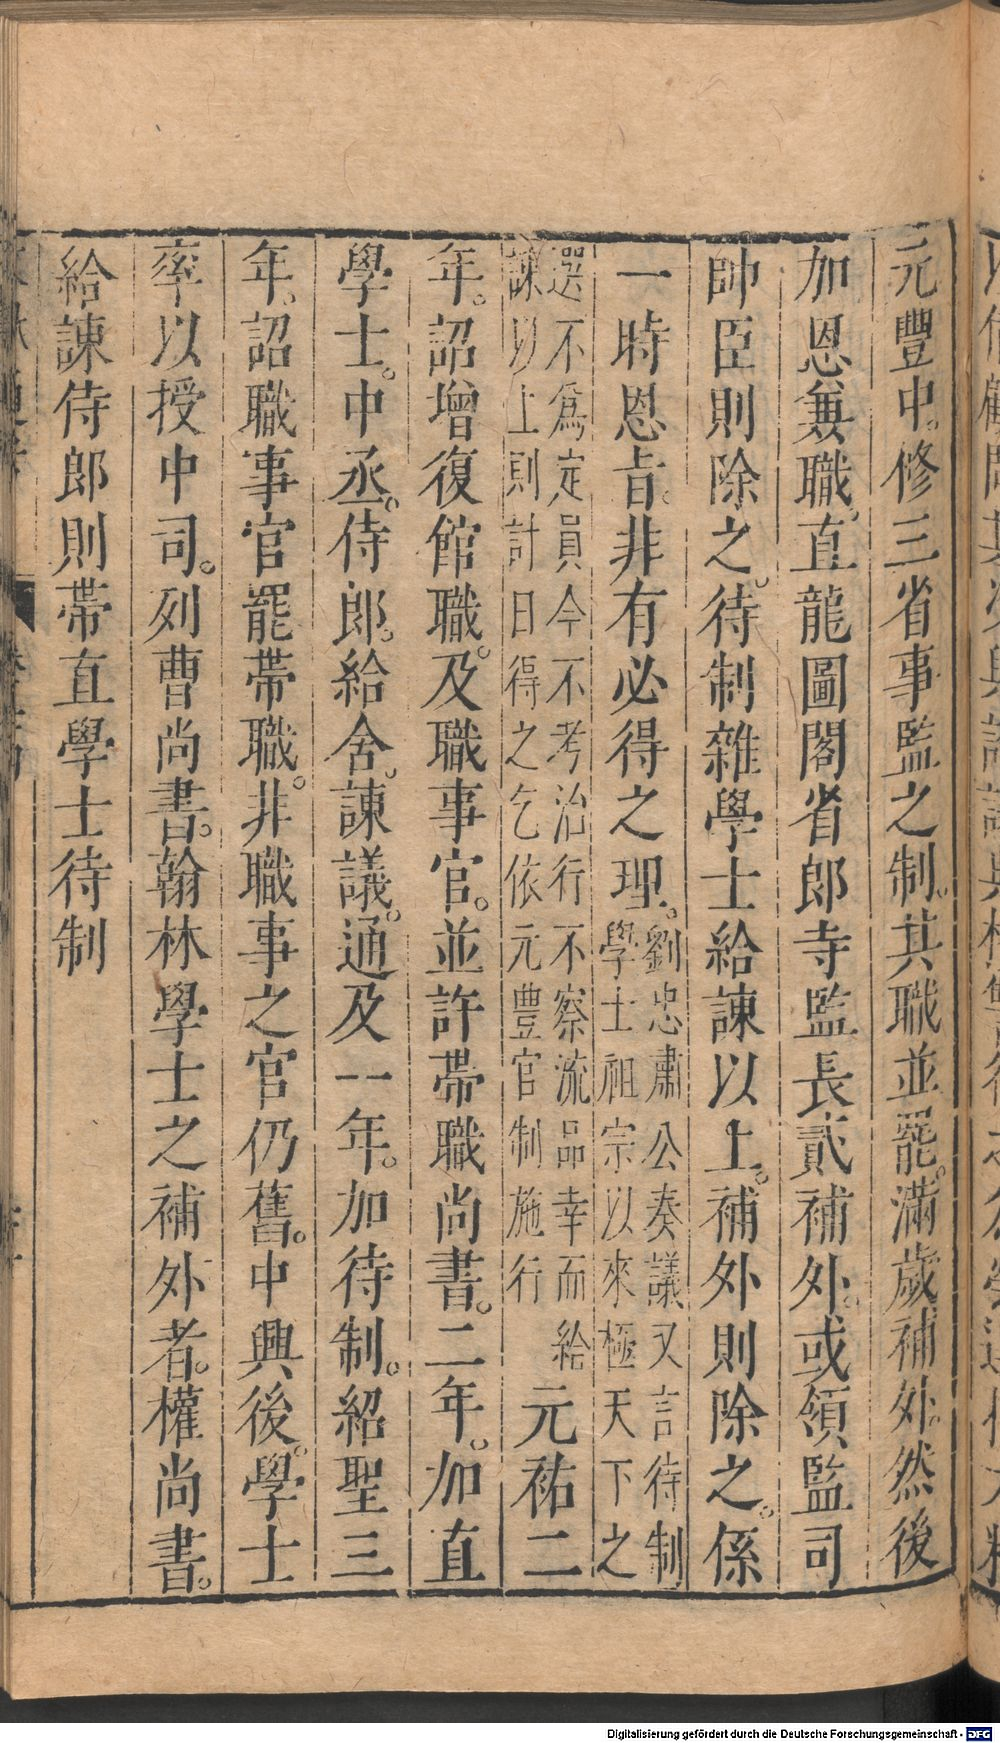 元豐中。修三省事監之制。其職並罷。滿歲補外。然後
加恩兼職。直龍圖閣省郎寺監長貳補外。或領監司
帥臣則除之。待制雜學士給諫以上。補外則除之。係
一時恩旨。非有必得之理。劉忠肅公奏議又言待制
學士祖宗以來極天下之
選不爲定員今不考治行不察流品幸而給
諫以上則計日得之乞依元豊官制施行
元祐二
年。詔增復館職。及職事官。並許帶職尚書。二年。加直
學士。中丞。侍郎。給舍。諫議。通及一年。加待制。紹聖三
年。詔職事官罷帶職。非職事之官仍舊。中興後。學士
率以授中司。列曹尚書。翰林學士之補外者。權尚書。
給諫侍郎則帶直學士待制
Digitalisierung gefördert durch die Deutsche Forschungsgemeinschaft - DFG